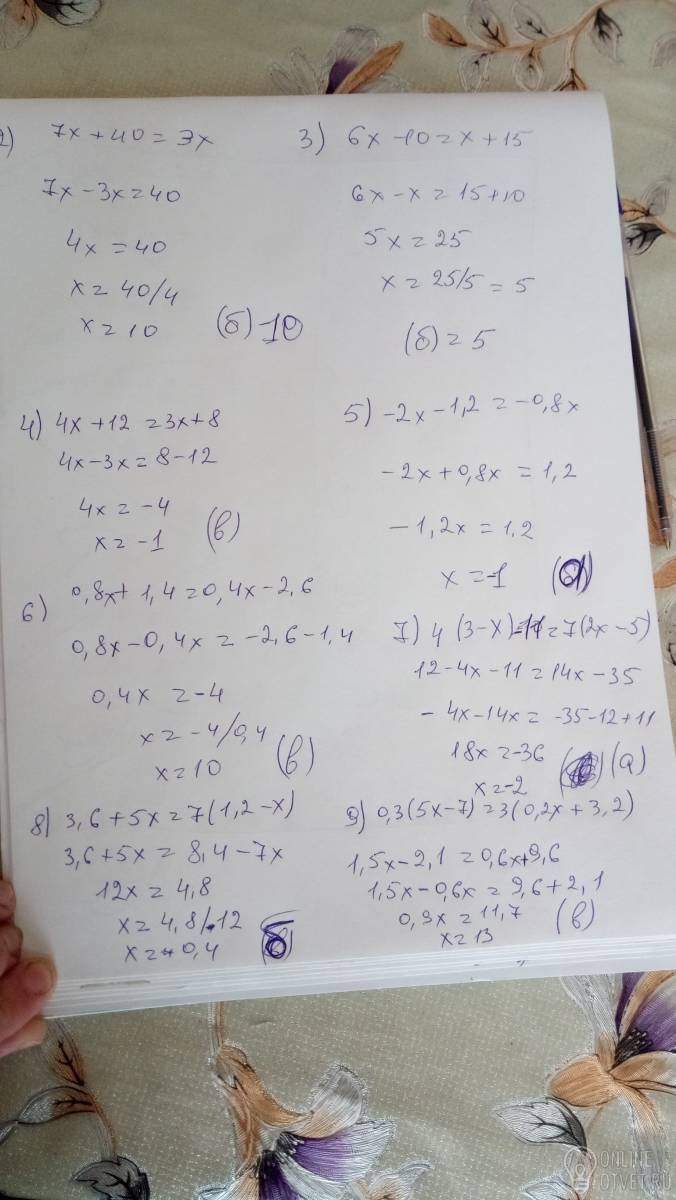 2) 7x + 40 = 3x
7x - 3x = 40
4x = 40
x = 40/4
x = 10 (б) 10
3) 6x - 10 = x + 15
6x - x = 15 + 10
5x = 25
x = 25/5 = 5
(б) = 5
4) 4x + 12 = 3x + 8
4x - 3x = 8 - 12
4x = -4
x = -1 (в)
5) -2x - 1,2 = -0,8x
-2x + 0,8x = 1,2
-1,2x = 1,2
x = -1
6) 0,8x + 1,4 = 0,4x - 2,6
0,8x - 0,4x = -2,6 - 1,4
0,4x = -4
x = -4/0,4
x = 10 (в)
7) 4 (3-x) - 11 = 7(2x - 5)
12 - 4x - 11 = 14x - 35
- 4x - 14x = -35 - 12 + 11
18x = -36
x = -2 (а)
8) 3,6 + 5x = 7(1,2 - x)
3,6 + 5x = 8,4 - 7x
12x = 4,8
x = 4,8/12
x = 0,4 б
9) 0,3(5x - 7) = 3(0,2x + 3,2)
1,5x - 2,1 = 0,6x + 9,6
1,5x - 0,6x = 9,6 + 2,1
0,9x = 11,7
x = 13 (в)
ONLINE
OTVET.RU